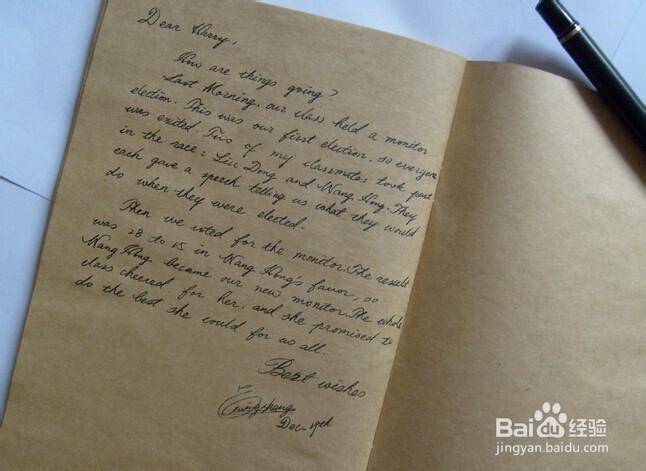 Dear Harry,
How are things going?
Last Morning, our class held a monitor
election. This was our first election, so everyone
was exited. Two of my classmates took part
in the race: Liu Dong and Wang Hong. They
each gave a speech telling us what they would
do when they were elected.
Then we voted for the monitor. The result
was 28 to 15 in Wang Hong's favor, so
Wang Hong became our new monitor. The whole
class cheered for her, and she promised to
do the best she could for us all.
Best wishes
Dec.
Baidu经验
jingyan.baidu.com